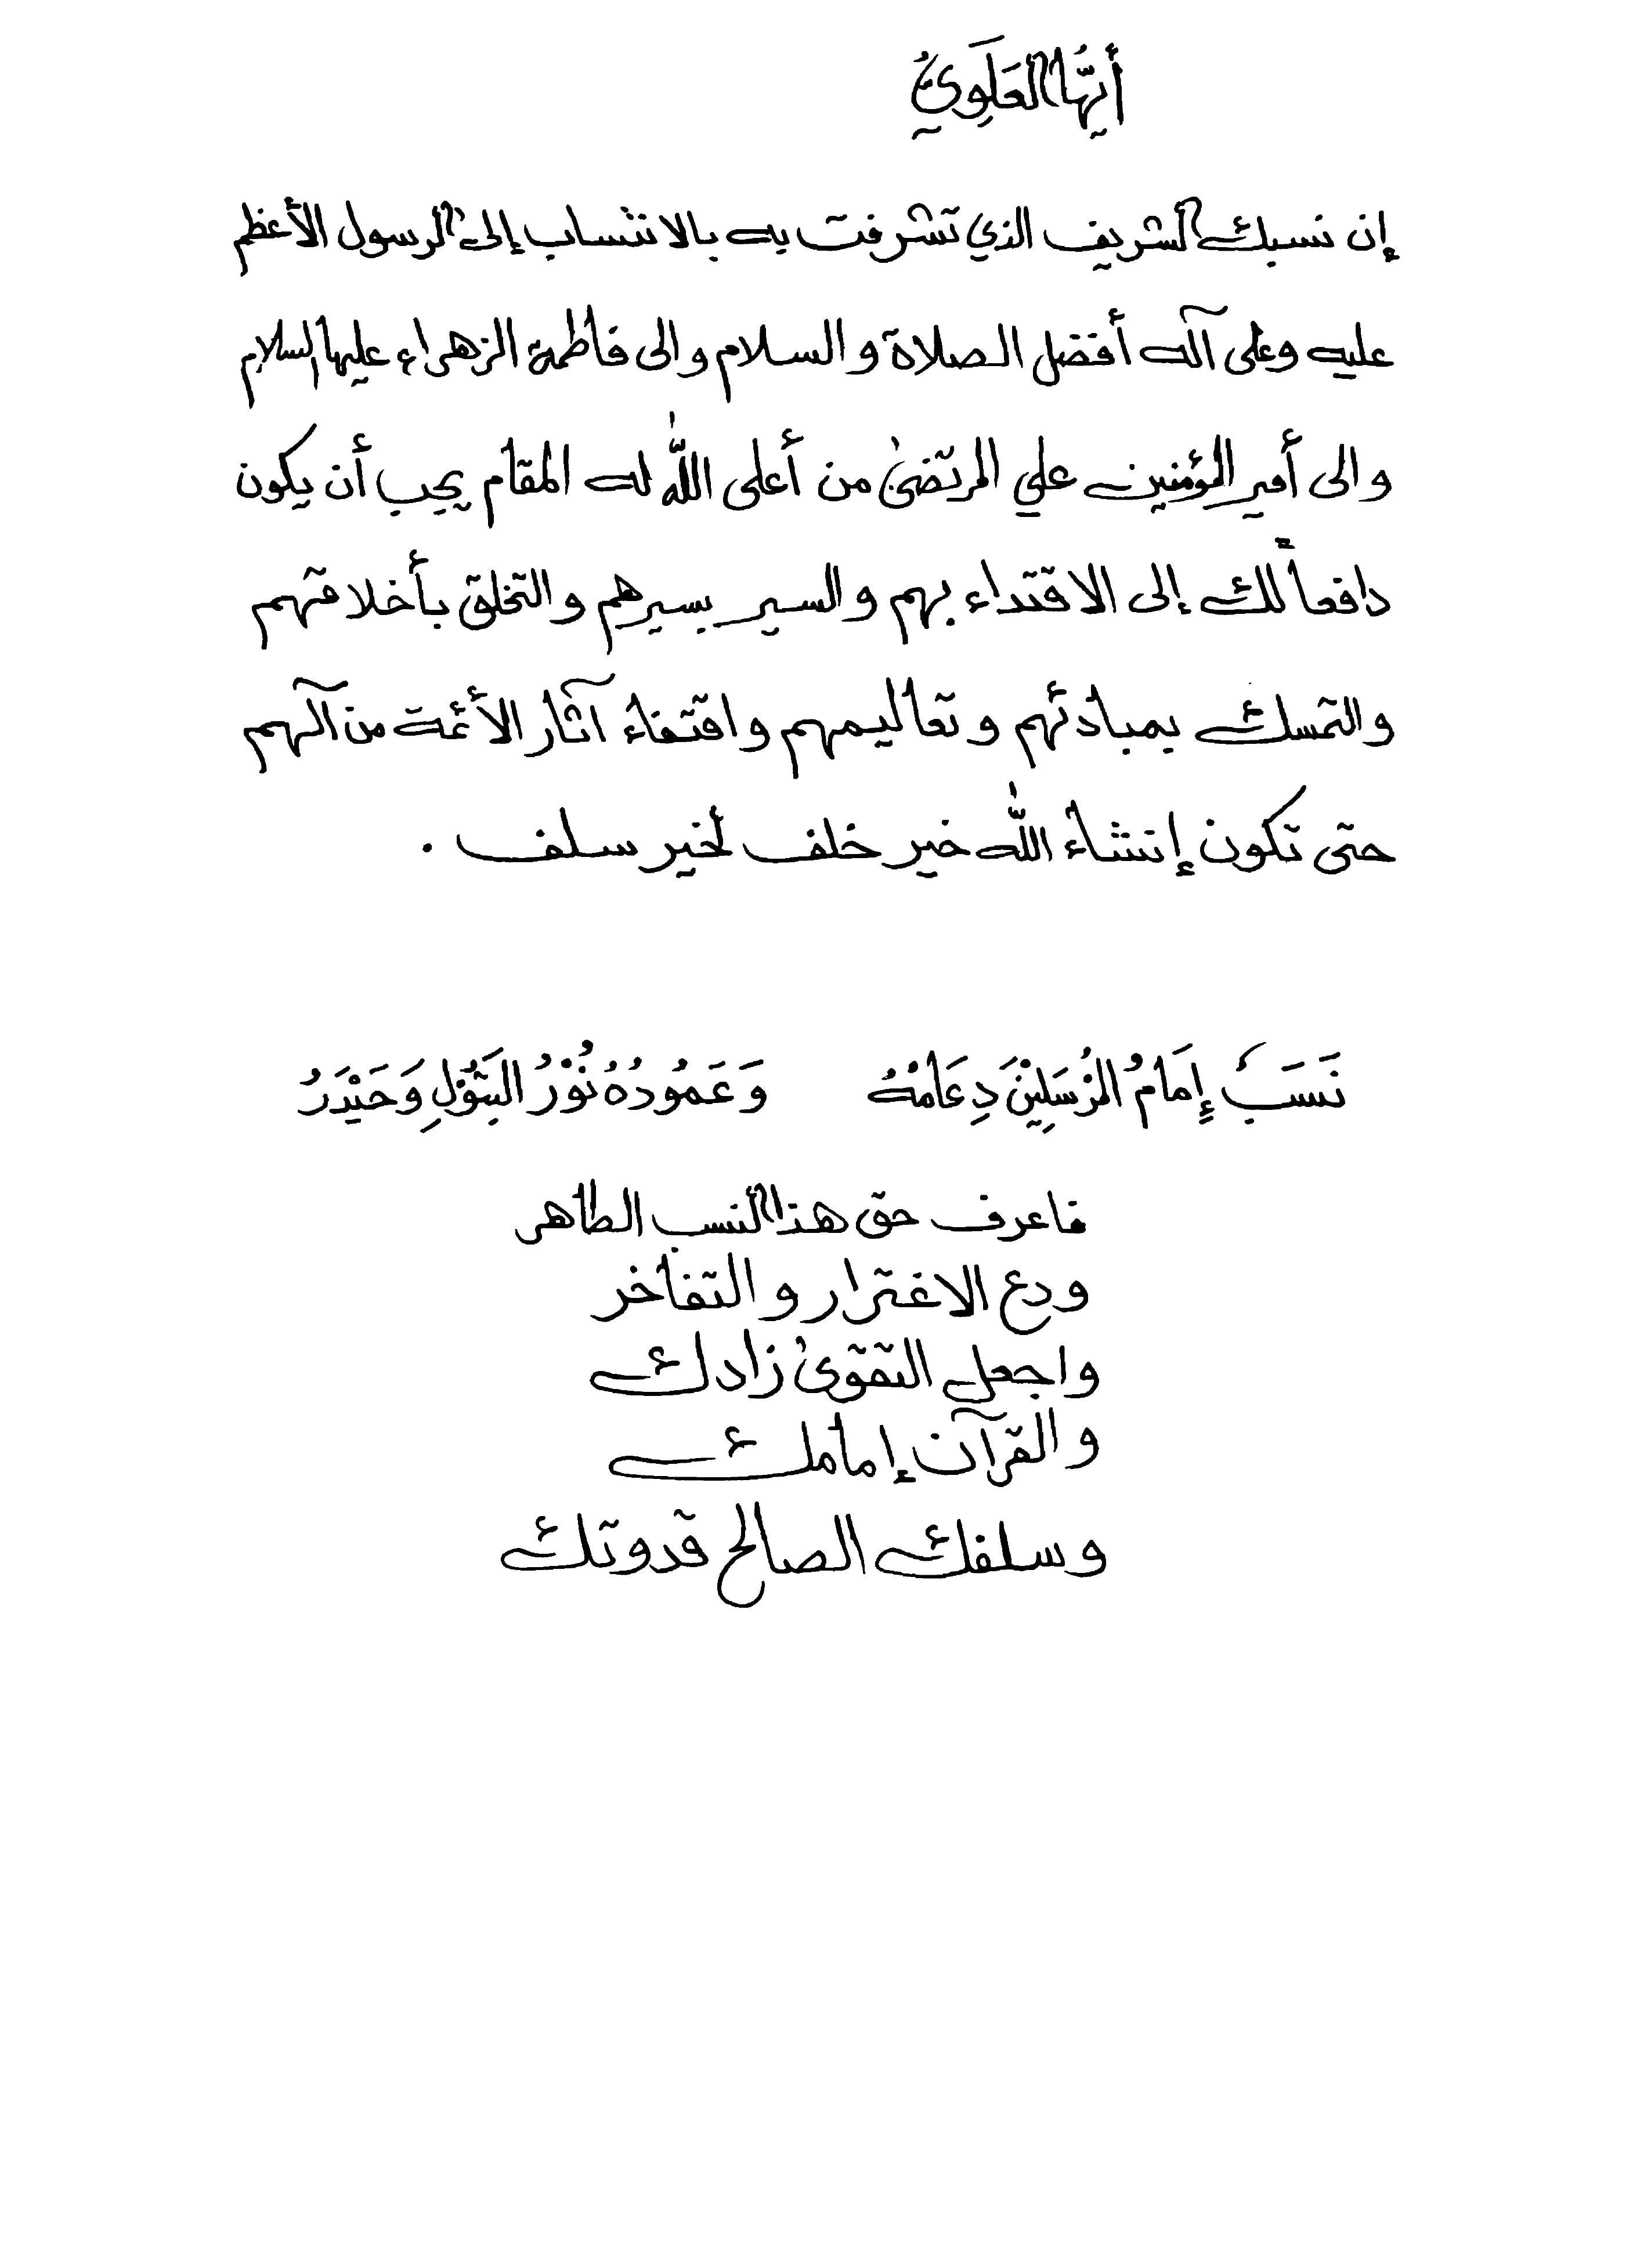 أَيُّهَا العَلَوِيُّ
إن نسبك الشريف الذي تشرفت به بالانتساب إلى الرسول الأعظم
عليه وعلى آله أفضل الصلاة والسلام والى فاطمة الزهراء عليها السلام
والى أمير المؤمنين علي المرتضىٰ من أعلى اللّٰه له المقام يجب أن يكون
دافعاً لك إلى الاقتداء بهم والسير بسيرهم والتخلق بأخلاقهم
والتمسك بمبادئهم وتعاليمهم واقتفاء آثار الأئمة من آلهم
حتى تكون إنشاء اللّٰه خير خلف لخير سلف .
نَسَبٌ إِمَامُ المُرْسَلِيْنَ دِعَامُهُ وَعَمُودُهُ نُوْرُ البَتُوْلِ وَحَيْدَرُ
فاعرف حق هذا النسب الطاهر
ودع الاغترار والتفاخر
واجعل التقوىٰ زادك
والقرآن إمامك
وسلفك الصالح قدوتك